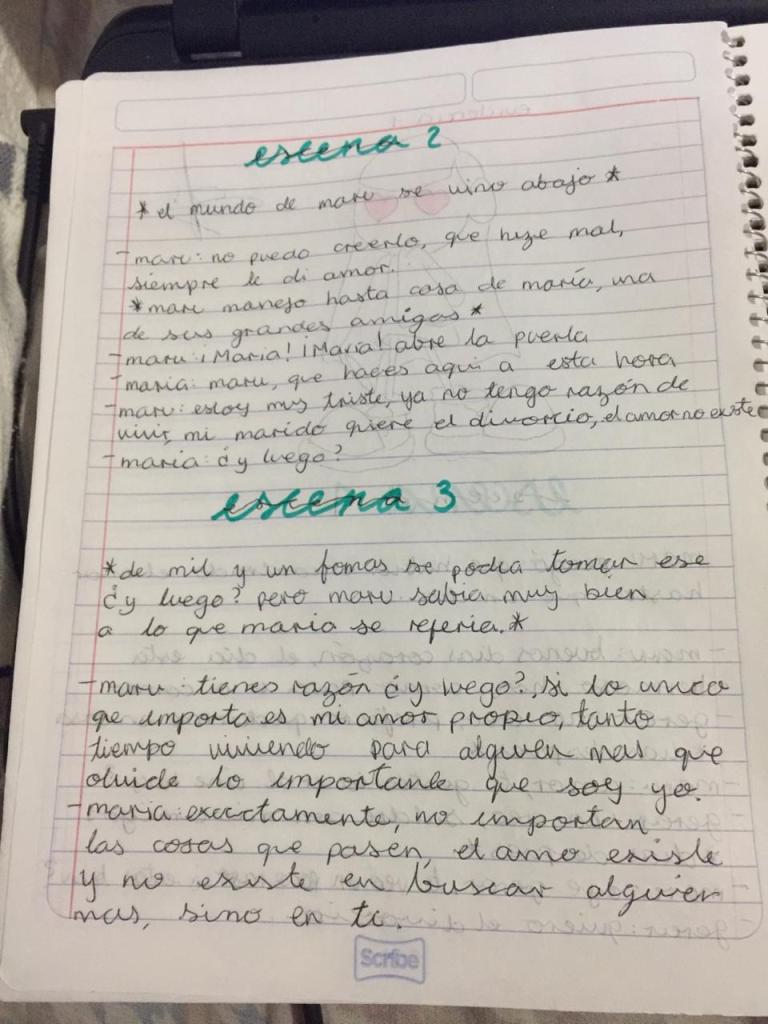 escena 2
*el mundo de maru se vino abajo*
-maru: no puedo creerlo, que hize mal,
siempre le di amor.
*maru manejo hasta casa de maría, una
de sus grandes amigas*
-maru: ¡Maria! ¡Maria! abre la puerta
-maria: maru, que haces aqui a esta hora
-maru: estoy muy triste, ya no tengo razón de
vivir, mi marido quiere el divorcio, el amor no existe
-maria: ¿y luego?
escena 3
*de mil y un fomas se podia tomar ese
¿y luego? pero maru sabia muy bien
a lo que maria se referia.*
-maru: tienes razón ¿y luego?, si lo unico
que importa es mi amor propio, tanto
tiempo viviendo para alguien mas que
olvide lo importante que soy yo.
-maria: exactamente, no importan
las cosas que pasen, el amo existe
y no existe en buscar alguien
mas, sino en ti.
Scribe